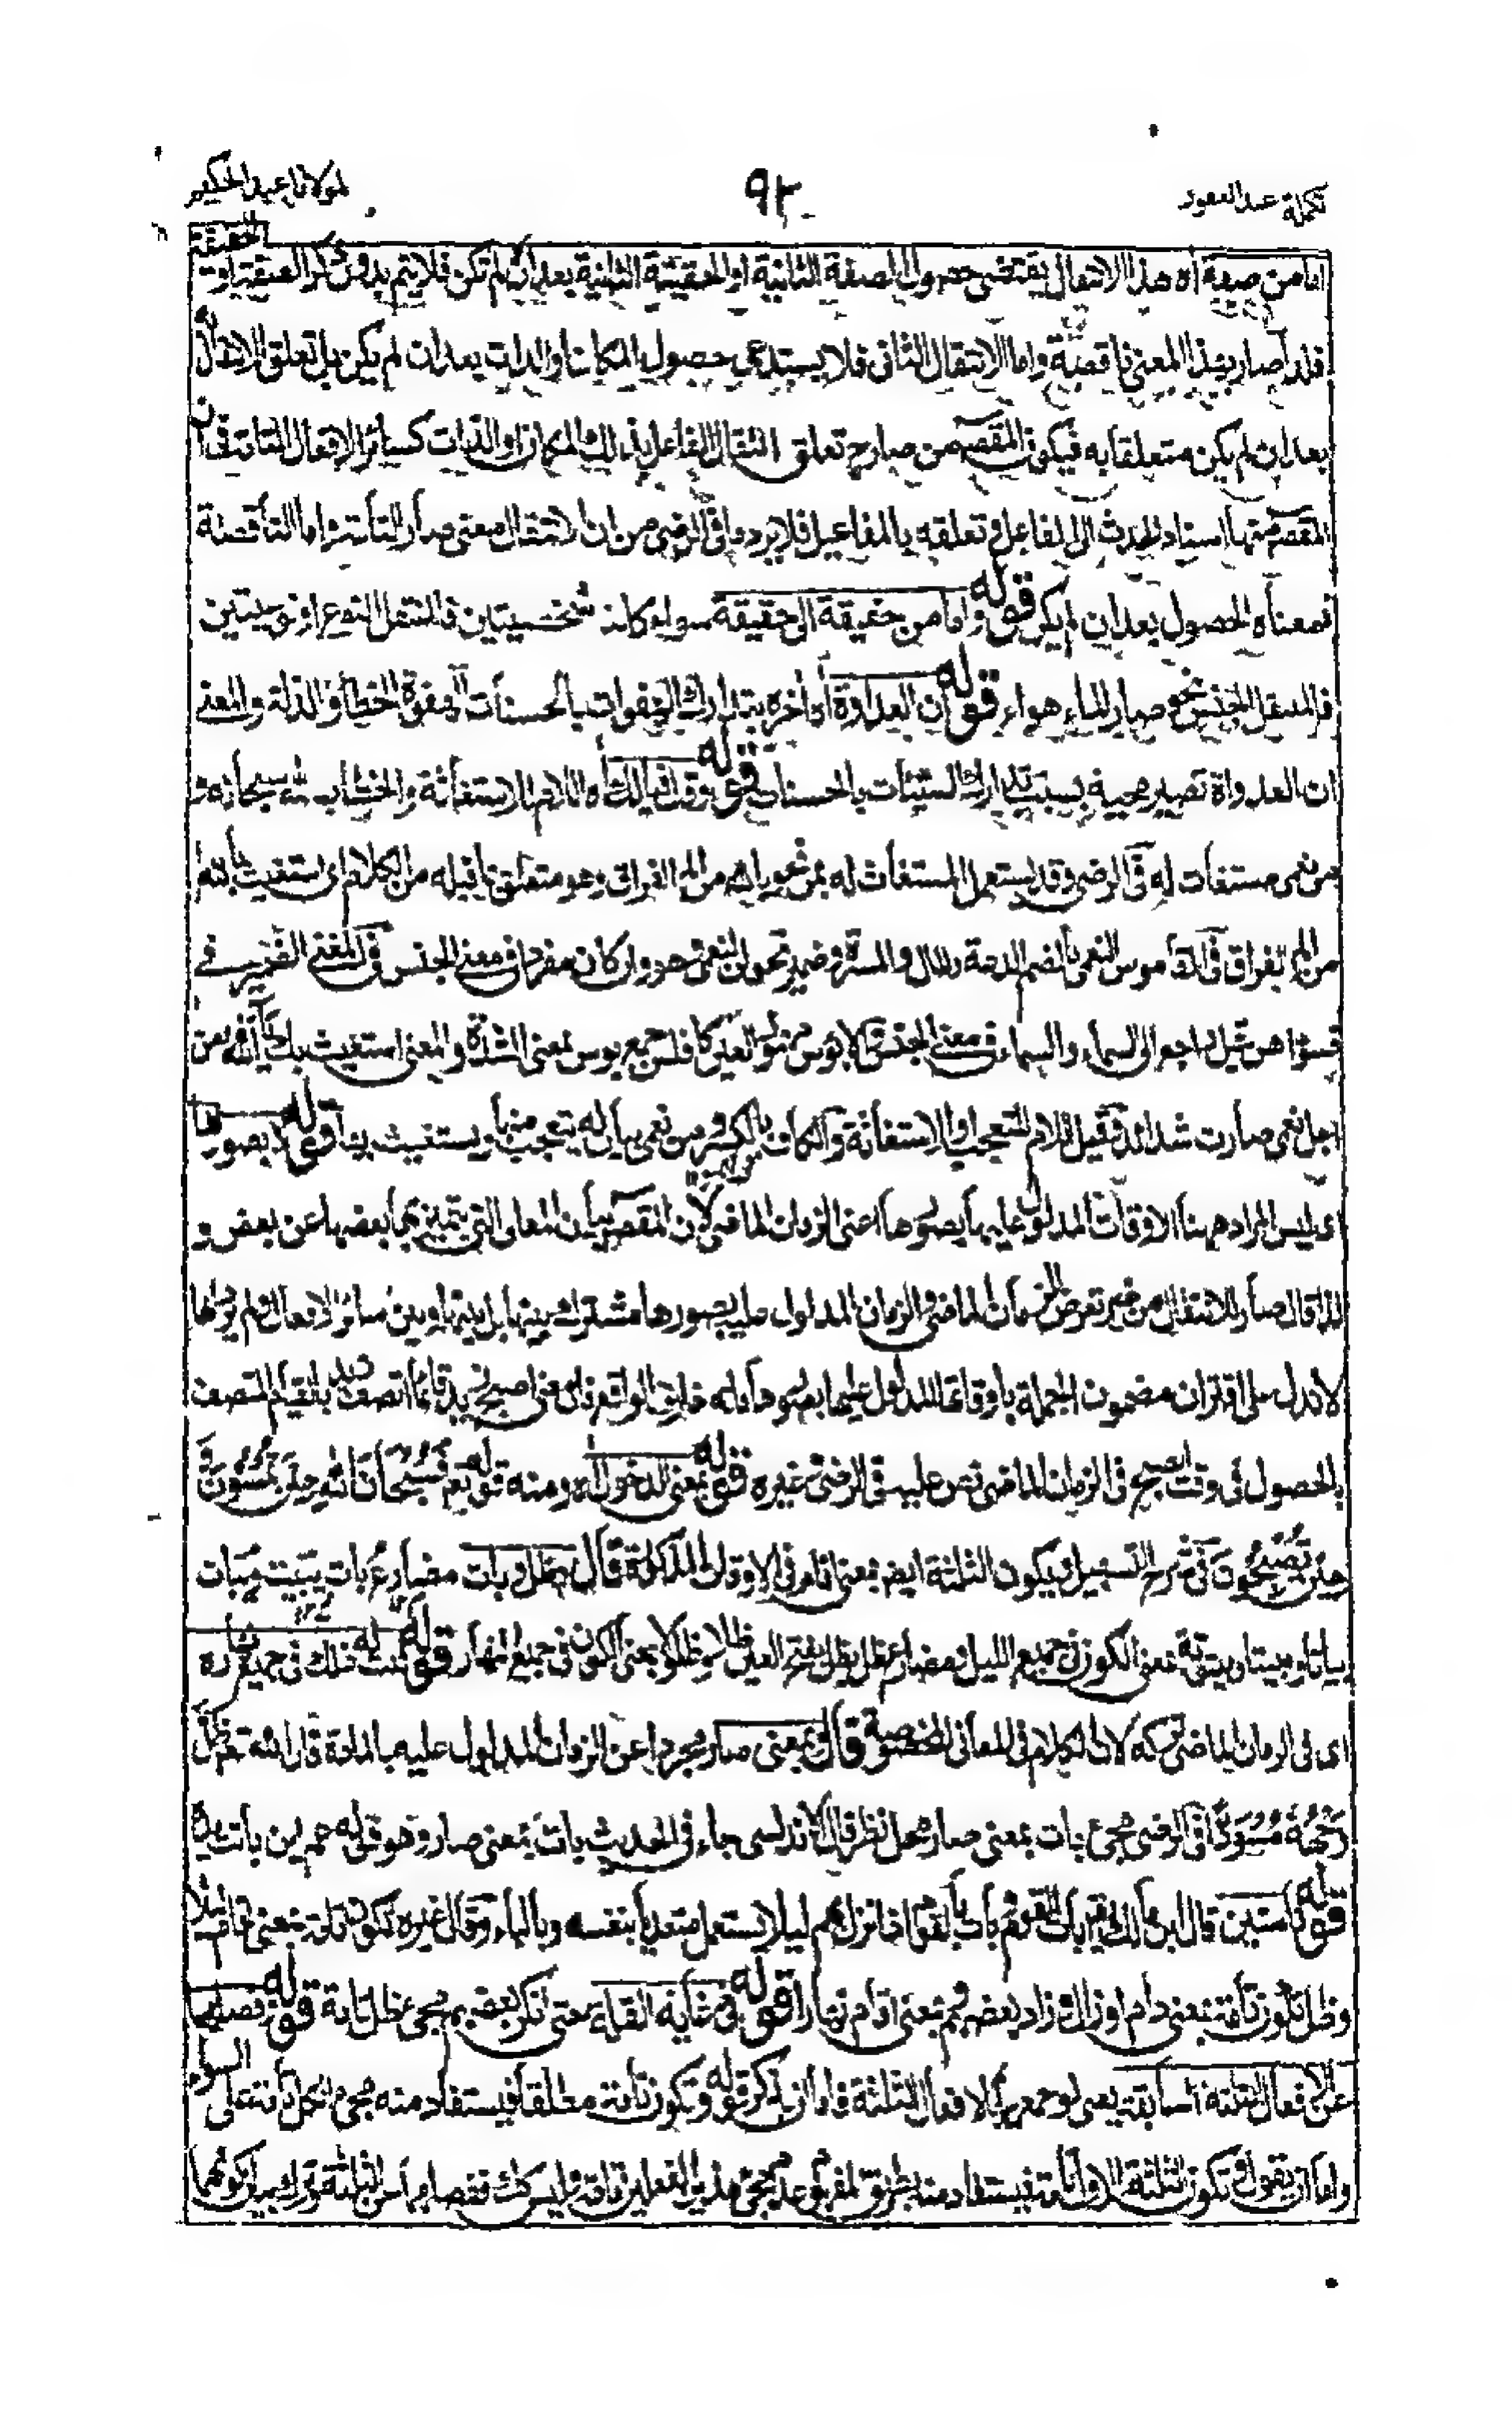 تكملة عبد الغفور
٩٢
لمولانا عبد الحكيم
الحقيقة
اما من صفة آه هذا الانتقال يقتضى حصول الصفة الثانية او الحقيقة الثانية بعد ان لم تكن فلا يتم بدون ذكر الصفة او
فلذا صار بهذا المعنى ناقصة واما الانتقال الثانى فلا يستدعى حصول المكان او الذات بعد ان لم يكن بل تعلق الانتقال
بعد ان لم يكن متعلقا به فيكون المقصود من صار ح تعلق انتقال الفاعل بذلك المكان او الذات كسائر الافعال التامة فان
المقصود منها اسناد الحدث الى الفاعل وتعلقه بالمفاعيل فلا يرد ما فى الرضى من ان الانتقال معنى صار التامة واما الناقصة
فمعناه الحصول بعد ان لم يكن قوله واما من حقيقة الى حقيقة سواء كانتا شخصيتين فالمنتقل النوع او نوعيتين
فالمنتقل الجنس نحو صار الماء هواء قوله ان العداوة آه آخره بتدارك الهفوات بالحسنات الهفوة الخطأ والذلة والمعنى
ان العداوة تصير محبة بسبب تدارك السيئات بالحسنات قوله فيالك آه اللام للاستغاثة والخطاب لله سبحانه و
من نعمى مستغاث له فى الرضى وقد يستعمل المستغاث له بمن نحو يا لله من الم الفراق وهو متعلق بما قبله من الكلام اى استغيث بالله
من الم الفراق فى القاموس النعمى بالضم الدعة والمال والمسرة وضمير تحولن لنعمى وهو وان كان مفردا فى معنى الجنس فى المغنى الضمير فى
فسواهن قيل راجع الى السماء والسماء فى معنى الجنس والابؤس مهموز العين كافلس جمع بوس بمعنى الشدة والمعنى استغيث بك يا الله من
اجل نعمى صارت شدائد وقيل اللام للتعجب او الاستغاثة والكاف بالكسر ومن نعمى بيان له يتعجب منها ويستغيث بها قوله لا بصورها
اى ليس المراد ههنا الاوقات المدلول عليها بصورها اعنى الزمان الماضى لان المقصود بيان المعانى التى يتميز بها بعضها عن بعض و
لذا قال صار للانتقال من غير تعرض للزمان الماضى والزمان المدلول عليه بصورها مشترك بينها بل بينها وبين سائر الافعال ولم يرد انها
لا تدل على اقتران مضمون الجملة باوقاتها المدلول عليها بصورها فانه خلاف الواقع فان معنى اصبح زيد قائما اتصف زيد بالقيام المتصف
بالحصول فى وقت الصبح فى الزمان الماضى نص عليه فى الرضى وغيره قوله بمعنى الدخول آه ومنه قوله تع فَسُبْحَانَ اللهِ حِينَ تُمْسُونَ وَ
حِينَ تُصْبِحُونَ فى شرح التسهيل ويكون الثلثة ايضا بمعنى اقام فى الاوقات المذكورة قال وظل وبات مضارع بات يبيت ويبات
بياتا ومبيتا وبيتوتة بمعنى الكون فى جميع الليل ومضارع ظل يظل بفتح العين ظلا وظلولا بمعنى الكون فى جميع النهار قوله ثبت له ذلك فى جميع نهاره
اى فى الزمان الماضى تركه لان الكلام فى المعانى المخصوصة قال وبمعنى صار مجردا عن الزمان المدلول عليه بالمادة قال الله تعم ظَلَّ
وَجْهُهُ مُسْوَدًّا فى الرضى مجئ بات بمعنى صار محل نظر قال الاندلسى جاء فى الحديث بات بمعنى صار وهو قوله عم اين باتت يده
قوله تامتين قال ابن مالك يقال بات القوم وبات بالقوم اذا نزل بهم ليلا يستعمل متعديا بنفسه وبالباء وقال غيره تكون تامة بمعنى اقام ليلا
وظل تكون تامة بمعنى دام او زال وزاد بعضهم بمعنى اقام نهارا قوله فى غاية القلة حتى انكر بعضهم مجئ ظل تامة قوله فصلهما
عن الافعال الثلثة السابقة يعنى لو جمعهما بالافعال الثلثة فاما ان يذكر قوله وتكون تامة مطلقا فيستفاد منه مجئ الكل تامة على السواء
واما ان يقول وتكون الثلثة الاول تامة فيستفاد منه بطريق المفهوم عدم مجئ هذين الفعلين تامة وليس كذلك ففصلهما عن الثلثة